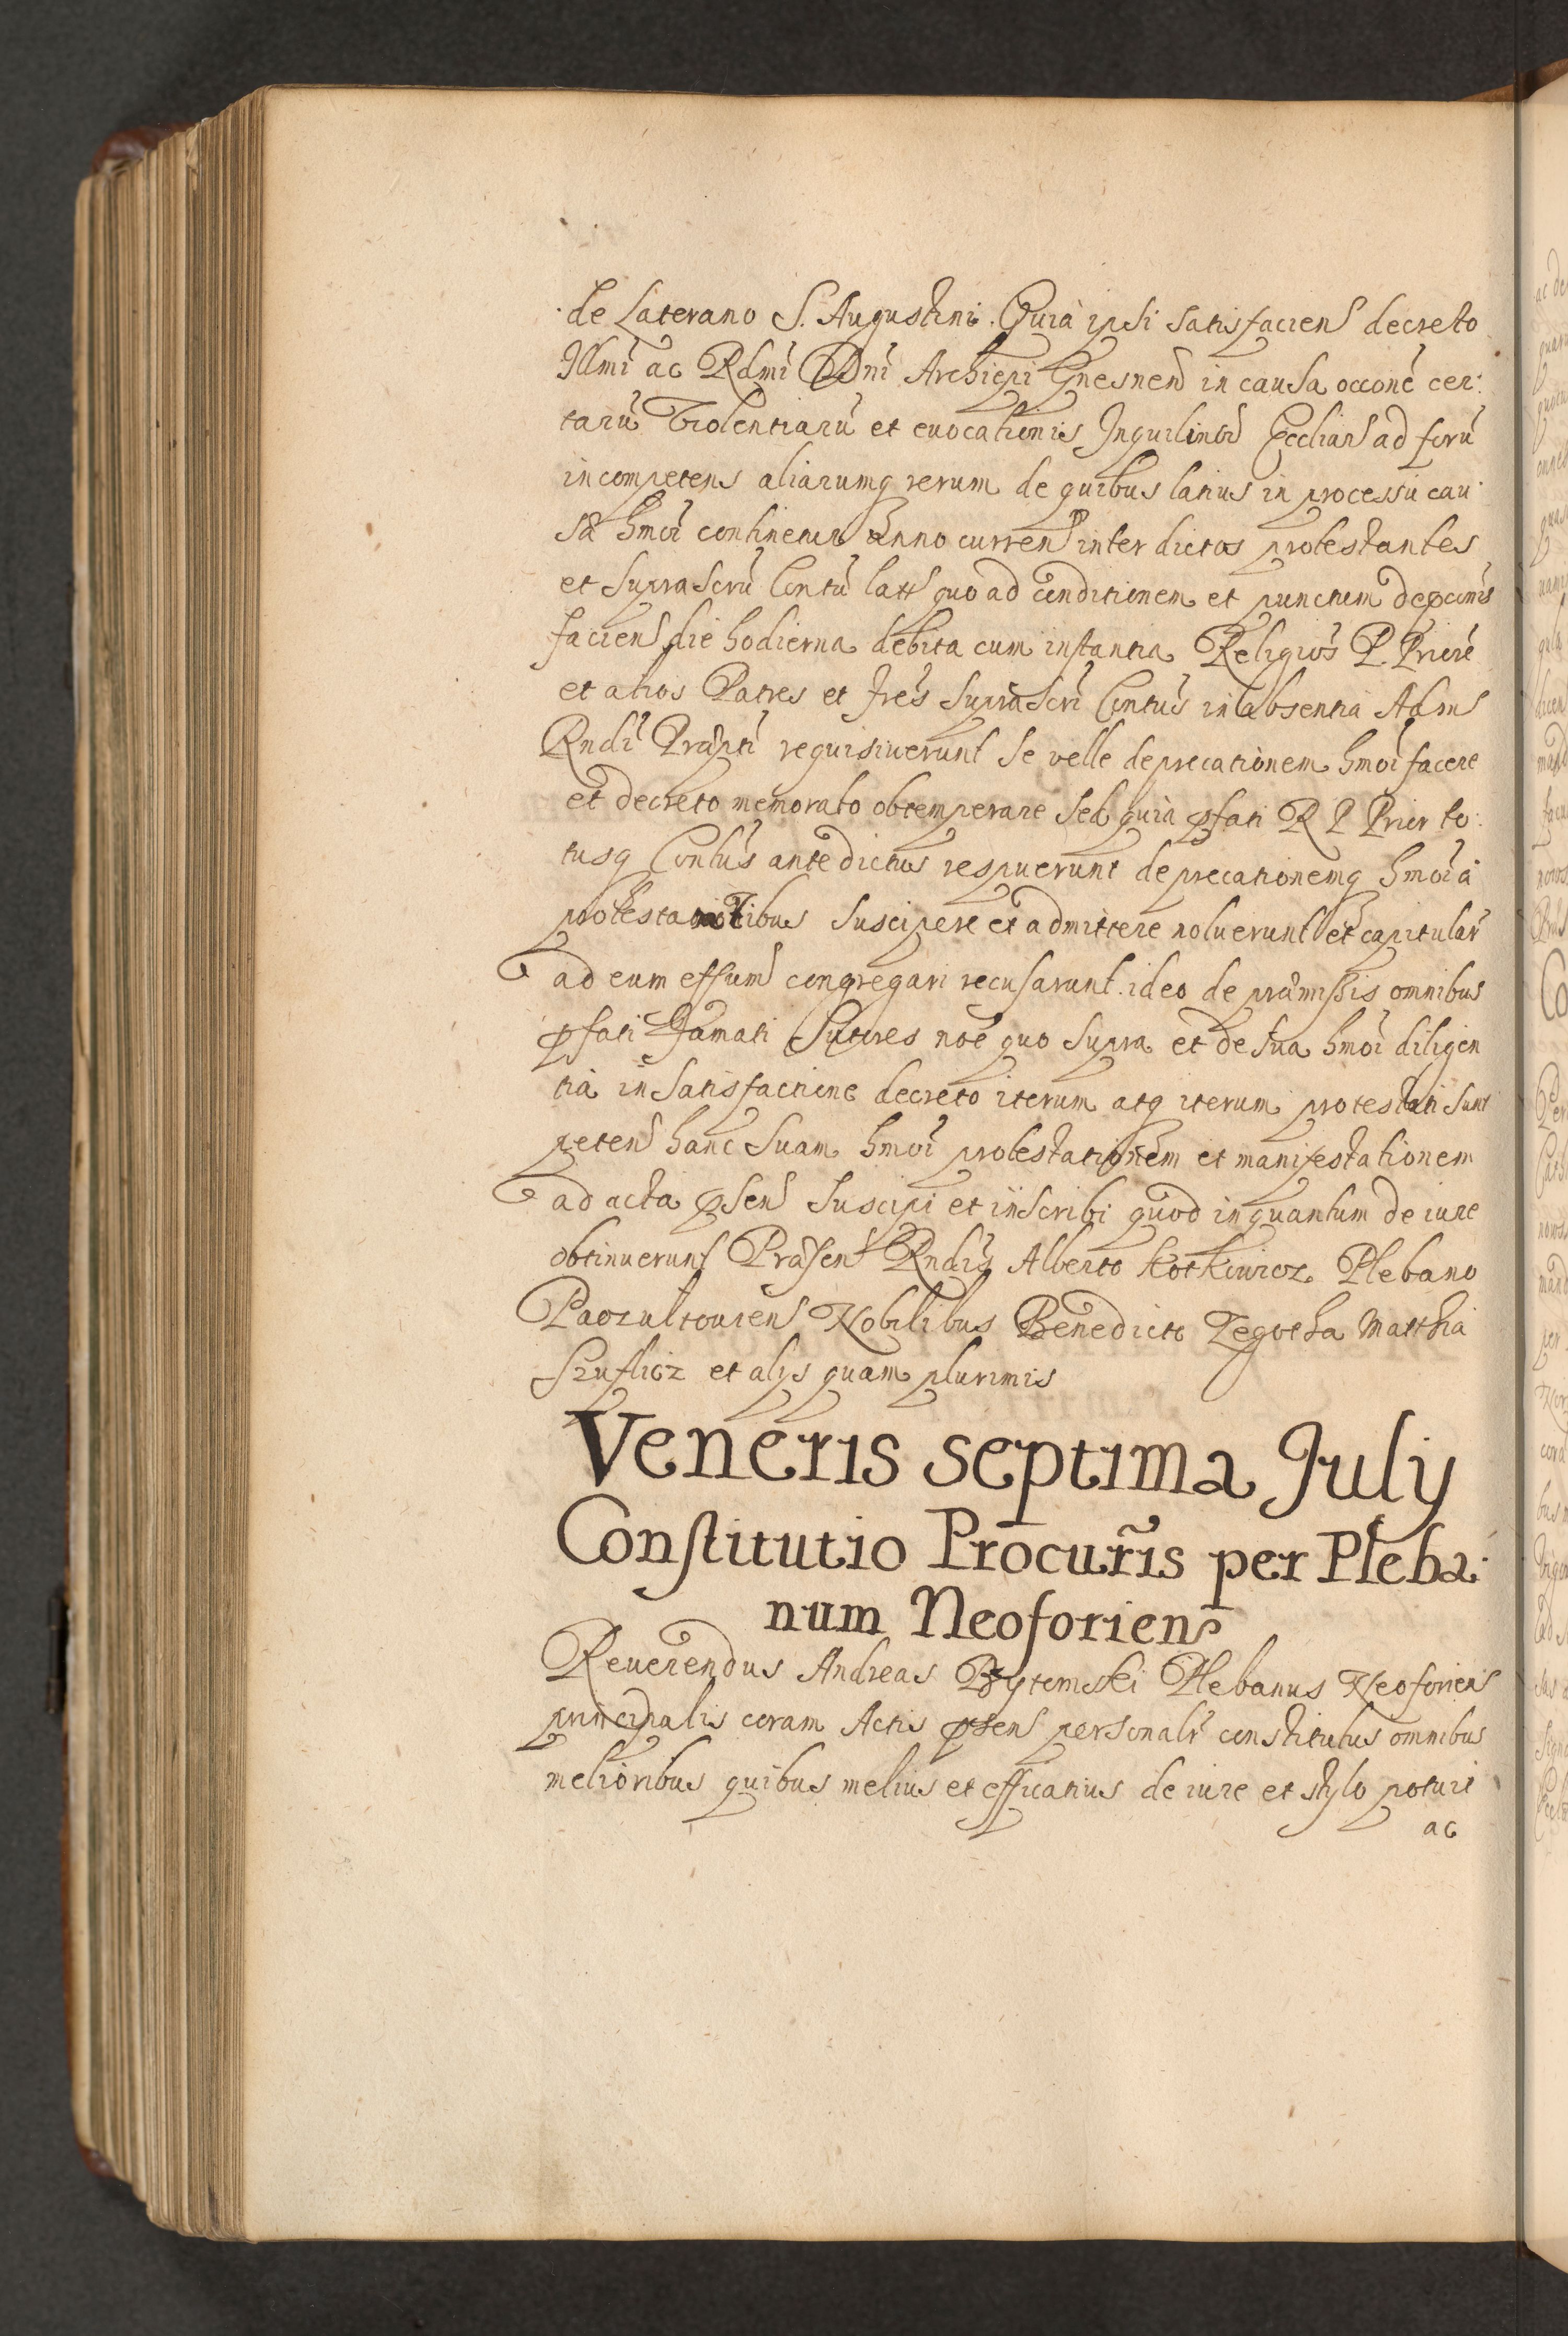 de Laterano S. Augustini. Quia ipsi satisfacien decreto
Illmi ac Rdmi Dni Archiepi Gnesnen in causa occone cer:
tarũ violentiarũ et evocationis Inquilinor Eccliar ad forũ
incompetens aliarumq rerum de quibus latius in processu cau:
sæ hmoi continetur Anno curren inter dictos protestantes
et suprascrũ Contũ latt quo ad conditionem et punctum depconis
facien die hodierna debita cum instantia Religios P. Priore
et alios Patres et fres suprascri Contus in absentia Adm
Rndi Præpti requisiverunt se velle deprecationem hmoi facere
et decreto memorato obtemperare sed quia pfati R P Prior to:
tusq Contus antedictus respuerunt deprecationemq hmoi a
protestantibus suscipere et admittere noluerunt et capitular
ad eum effum congregari recusarunt. ideo de præmissis omnibus
pfati Famati Sutores noe quo supra et de sua hmoi diligen
tia in satisfactione decreto iterum atq iterum protestati sunt
peten hanc suam hmoi protestationem et manifestationem
ad acta psen suscipi et inscribi quod inquantum de iure
obtinuerunt Præsen Rndis Alberto Kotkowicz Plebano
Paczultovien Nobilibus Benedicto Zegotha Matthia
Szuflicz et alys quam plurimis
Veneris septima July
Constitutio Procurr̃is per Pleba:
num Neoforien
Reverendus Andreas Bytomski Plebanus Neoforien
principalis coram Actis psen personalr constitutus omnibus
melioribus quibus melius et efficatius de iure et stylo potuit
ac